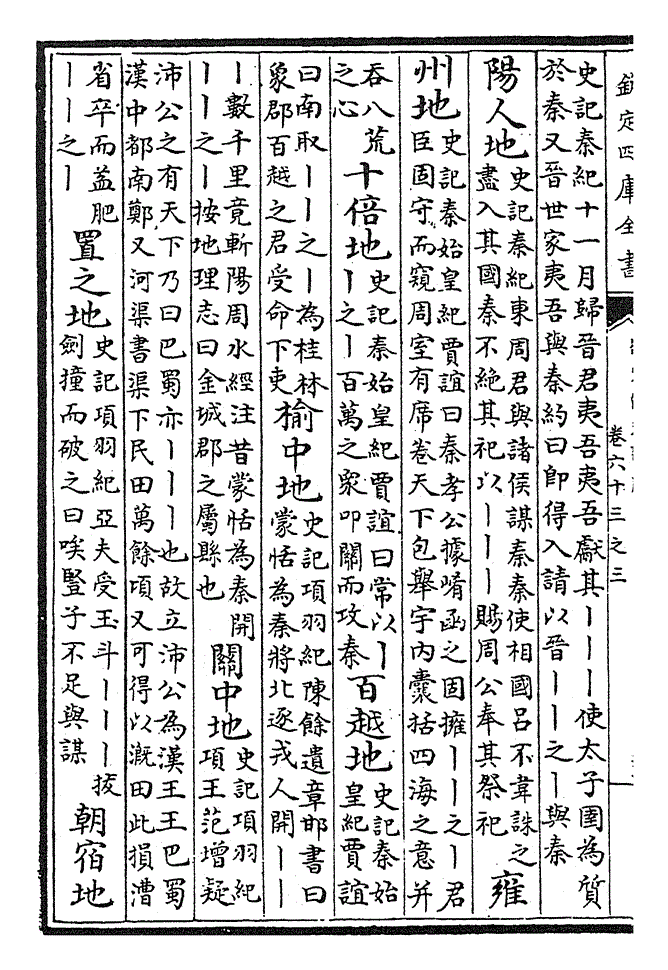 欽定四庫全書
卷六十三之三
史記秦紀十一月歸晉君夷吾夷吾獻其丨丨丨使太子圉為質
於秦又晉世家夷吾與秦約曰即得入請以晉丨丨之丨與秦
陽人地
史記秦紀東周君與諸侯謀秦秦使相國呂不韋誅之
盡入其國秦不絕其祀以丨丨丨賜周公奉其祭祀
雍
州地
史記秦始皇紀賈誼曰秦孝公據崤函之固擁丨丨之丨君
臣固守而窺周室有席卷天下包舉宇內囊括四海之意并
吞八荒
之心
十倍地
史記秦始皇紀賈誼曰常以丨
丨之丨百萬之衆叩關而攻秦
百越地
史記秦始
皇紀賈誼
曰南取丨丨之丨為桂林
象郡百越之君受命下吏
榆中地
史記項羽紀陳餘遺章邯書曰
蒙恬為秦將北逐戎人開丨丨
丨數千里竟斬陽周水經注昔蒙恬為秦開
丨丨之丨按地理志曰金城郡之屬縣也
關中地
史記項羽紀
項王范增疑
沛公之有天下乃曰巴蜀亦丨丨丨也故立沛公為漢王王巴蜀
漢中都南鄭又河渠書渠下民田萬餘頃又可得以溉田此損漕
省卒而益肥
丨丨之丨
置之地
史記項羽紀亞夫受玉斗丨丨丨拔
劍撞而破之曰唉豎子不足與謀
朝宿地